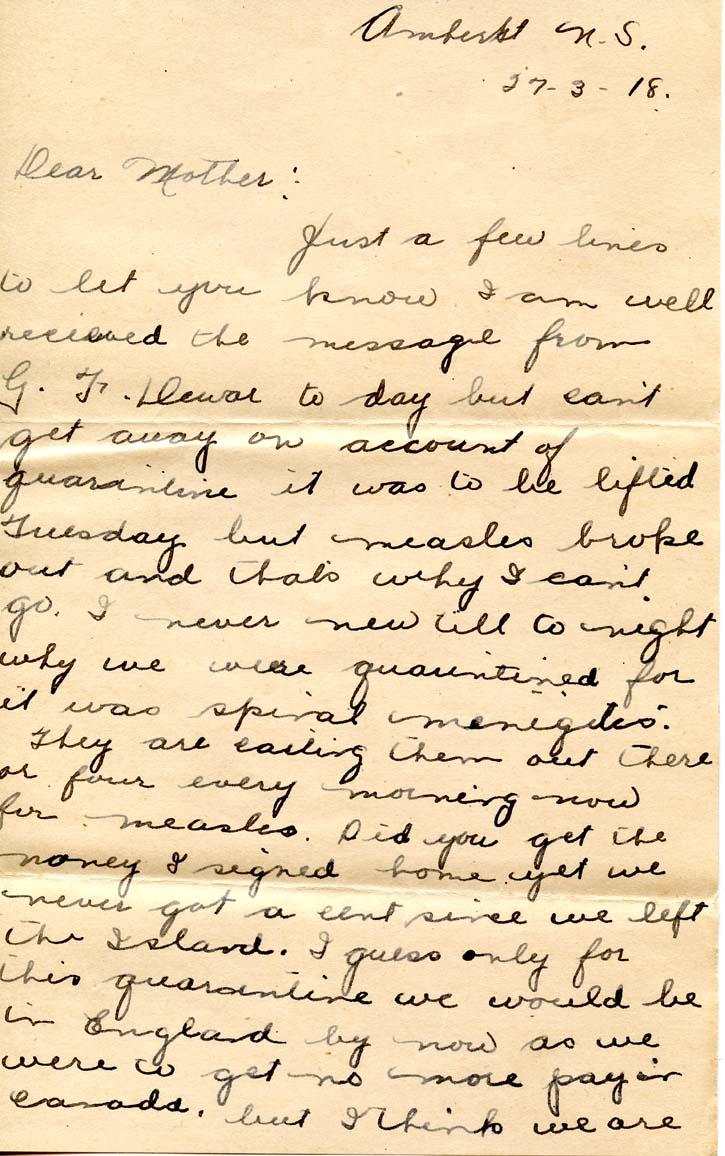 Amherst N.S.
27-3-18.
Dear Mother:
Just a few lines
to let you know I am well
recieved the message from
G. F. Dewar to day but can't
get away on account of
quarintine it was to be lifted
Tuesday but measles broke
out and thats why I can't
go. I never new till to night
why we were quauntined for
it was spinal menigites.
They are calling them out there
or four every morning now
for measles. Did you get the
money I signed home yet we
never got a cent since we left
the Island. I guess only for
this quarantine we would be
in England by now as we
were to get no more pay in
Canada. but I think we are